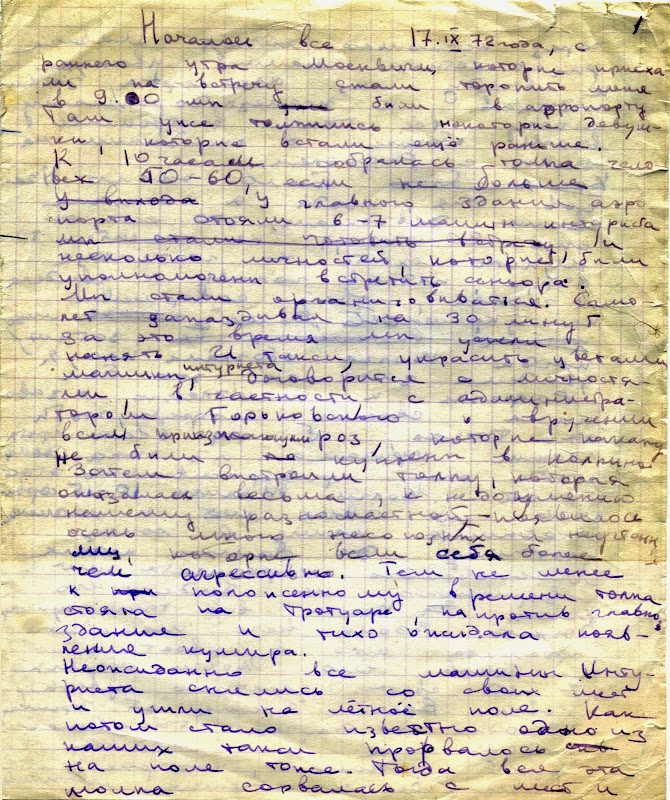 1
Началось все 17.IX 72 года, с
раннего утра Москвичи, которые приеха
ли на встречу стали торопить меня
в 9.00 мы были в аэропорту
Там уже толпились некоторые девуш-
ки, которые встали ещё раньше.
К 10 часам собралась толпа чело
век 40-60, если не больше
у выхода у главного здания аэро
порта стояли 6-7 машин интуриста
мы стали готовить встречу и
несколько личностей, которые были
уполномочены встретить сеньора.
Мы стали организовываться. Само
лет запаздывал на 30 минут
за это время мы успели
нанять 4 такси, украсить цветами
машины интуриста, договорится с личностя-
ми в частности с администра-
тором Горьковского о вручении
всем приезжающим роз, которые
не были куплены в Колпино
Затем выстроили толпу, которая
оказалась весьма, к недоумению
нашему разномастной - появилось
очень много
лиц, которые вели себя более
чем агрессивно. Тем не менее
к положенному времени толпа
стояла на тротуаре, напротив главно
здание и тихо ожидала появ-
ление кумира.
Неожиданно все машины Инту-
риста снялись со своих мест
и ушли на лётное поле. Как
потом стало известно одно из
наших такси прорвалось
на поле тоже. Тогда вся эта
толпа сорвалась с мест и